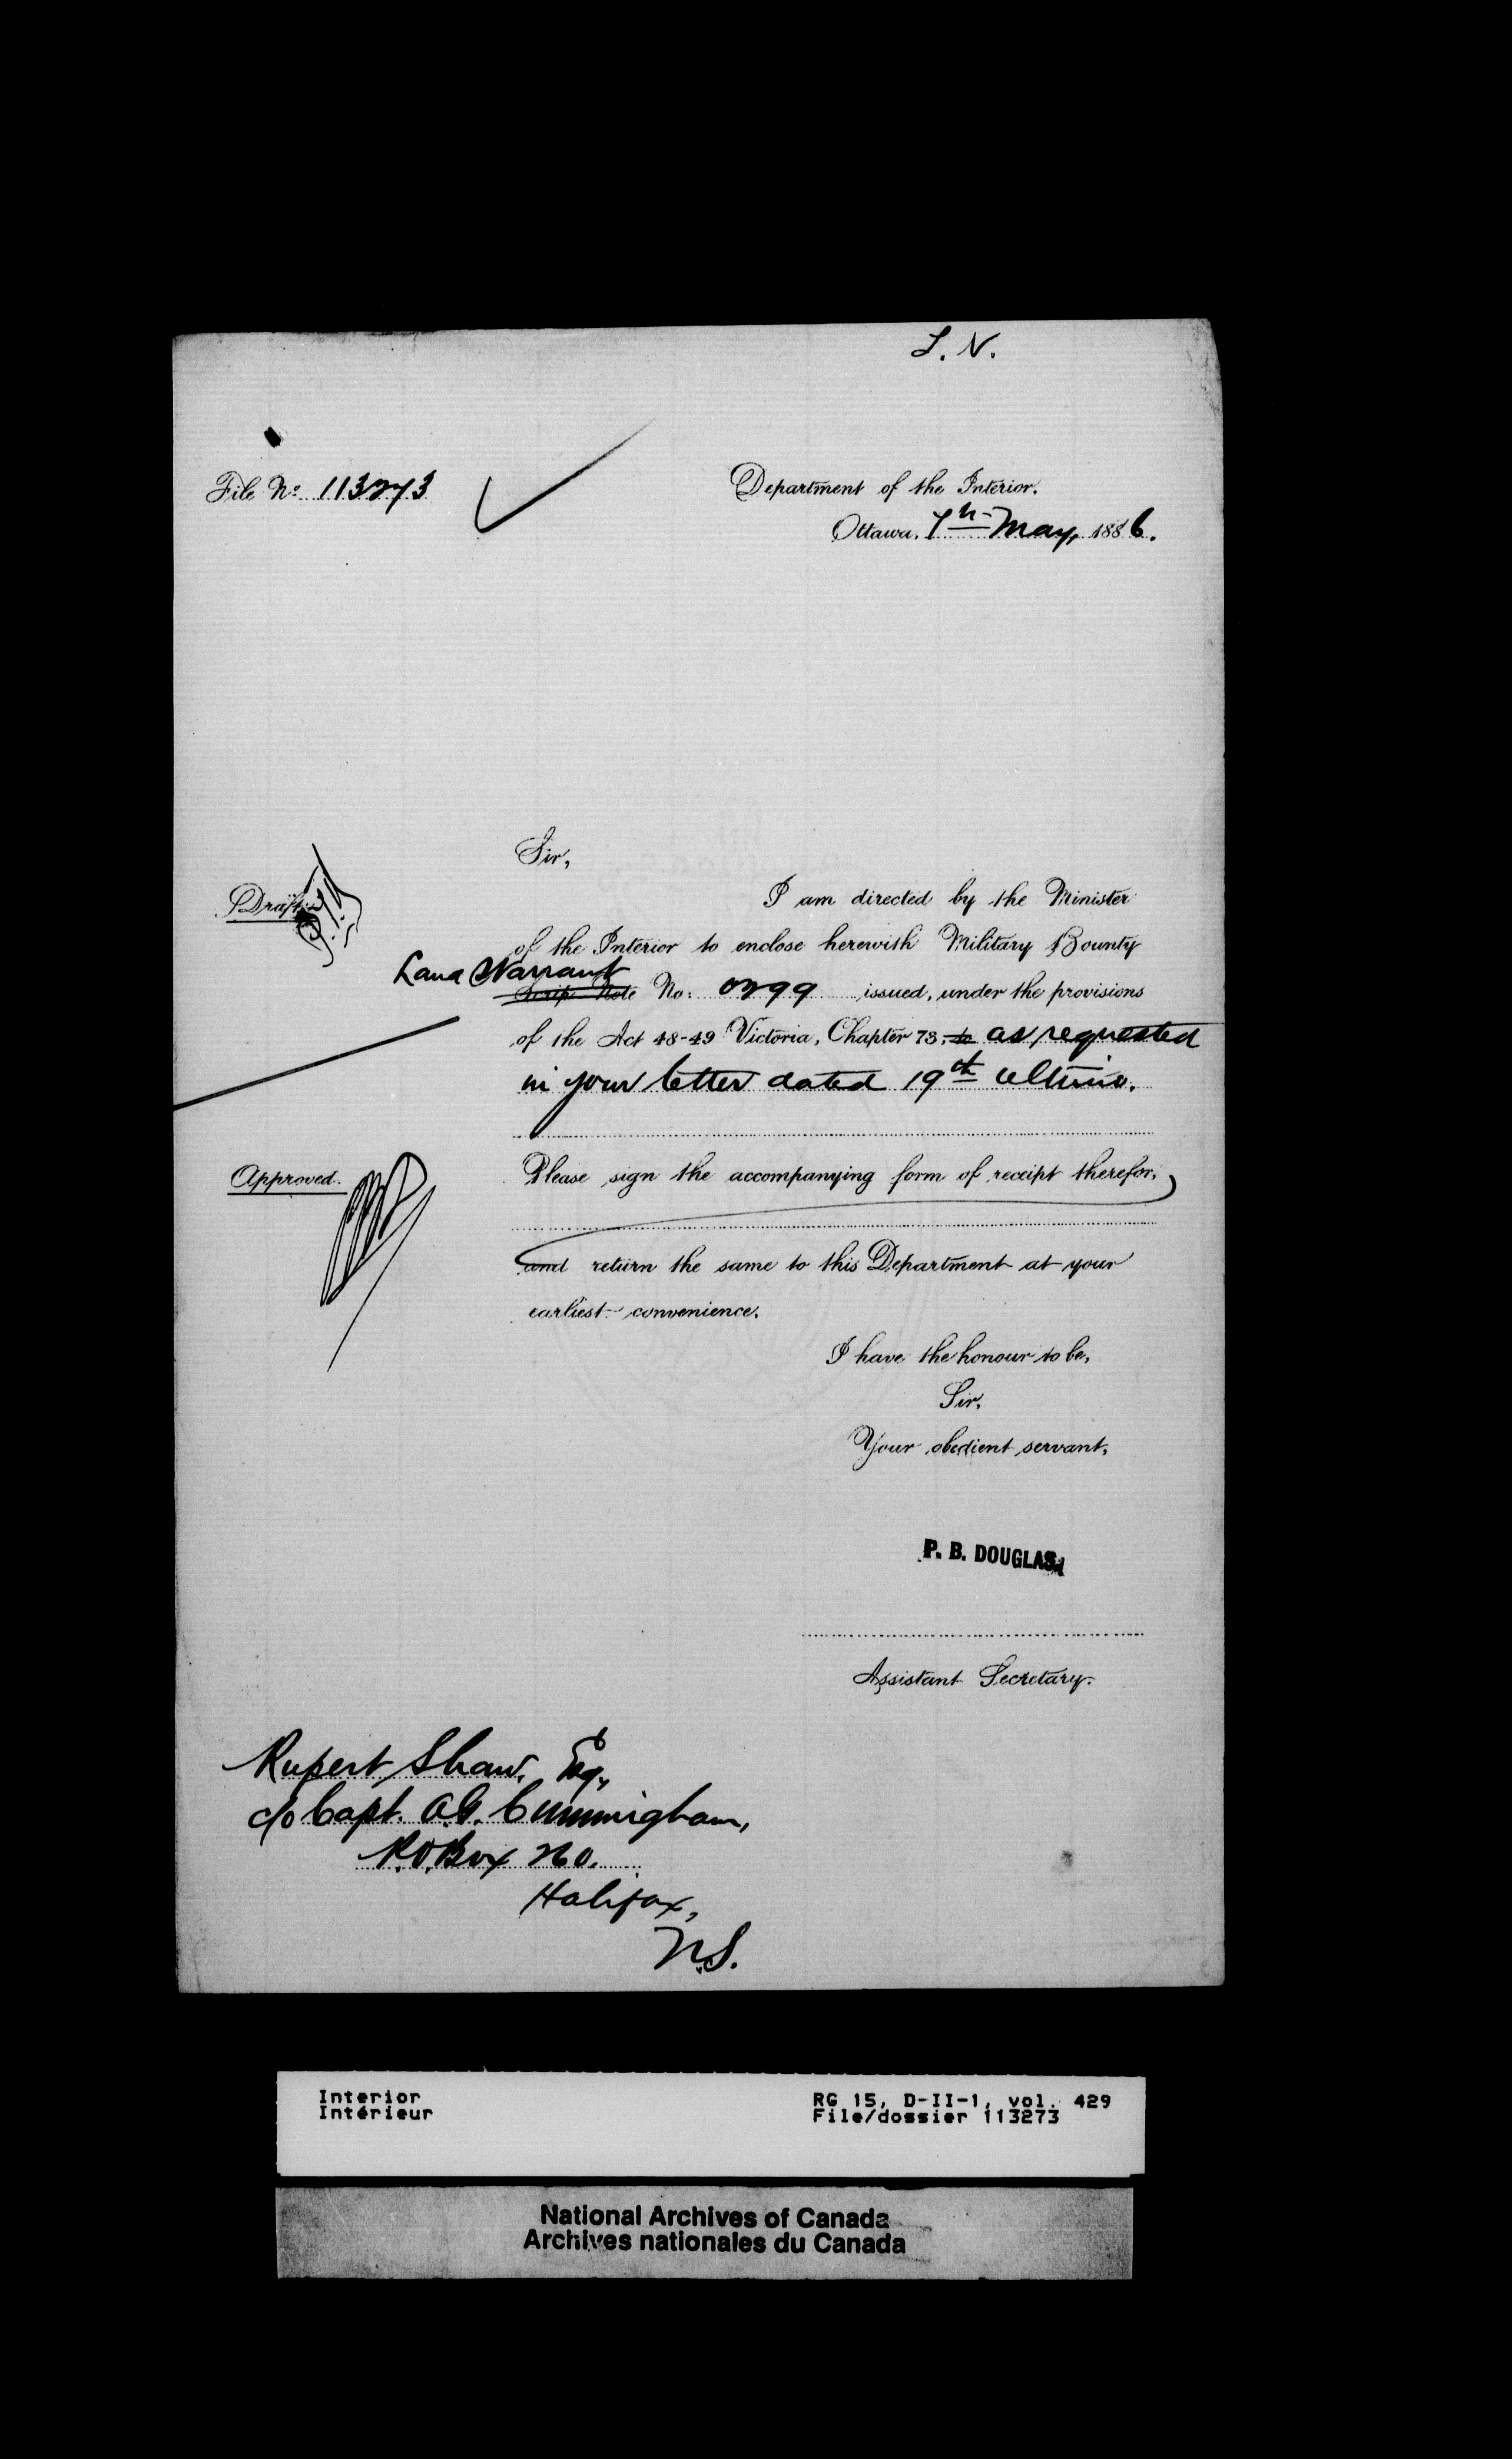 L. N.
File No: 113273
Department of the Interior.
Ottawa, 7th May, 1886.
Sir,
Draft
I am directed by the Minister
of the Interior to enclose herewith Military Bounty
Land Warrant
Scrip Note No: 0299 issued, under the provisions
of the Act 48-49 Victoria, Chapter 73, to as requested
in your letter dated 19th ultimo.
Approved.
Please sign the accompanying form of receipt therefor,
and return the same to this Department at your
earliest convenience.
I have the honour to be,
Sir,
Your obedient servant,
P. B. DOUGLAS,
Assistant Secretary.
Rupert Shaw, Esq.,
c/o Capt. A.G. Cunningham,
P.O. Box 260.
Halifax,
N.S.
Interior
Intérieur
RG 15, D-II-1, vol. 429
File/dossier 113273
National Archives of Canada
Archives nationales du Canada